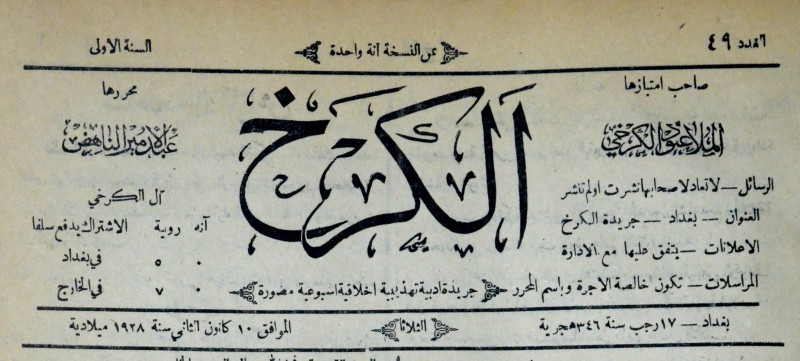 العدد ٤٩
ثمن النسخة آنة واحدة
السنة الاولى
صاحب امتيازها
الملا عبود الكرخي
الكرخ
محررها
عبد الامير الناهض
آل الكرخي
الرسائل — لا تعاد لاصحابها نشرت اولم تنشر
العنوان — بغداد — جريدة الكرخ
الاعلانات — يتفق عليها مع الادارة
المراسلات — تكون خالصة الاجرة وباسم المحرر
جريدة ادبية تهذيبية اخلاقية اسبوعية مصورة
آنه روبية الاشتراك يدفع سلفا
٠ ٥ في بغداد
٠ ٧ في الخارج
بغداد — ١٧ رجب سنة ٣٤٦ هجرية
الثلاثا
الموافق ١٠ كانون الثاني سنة ١٩٢٨ ميلادية